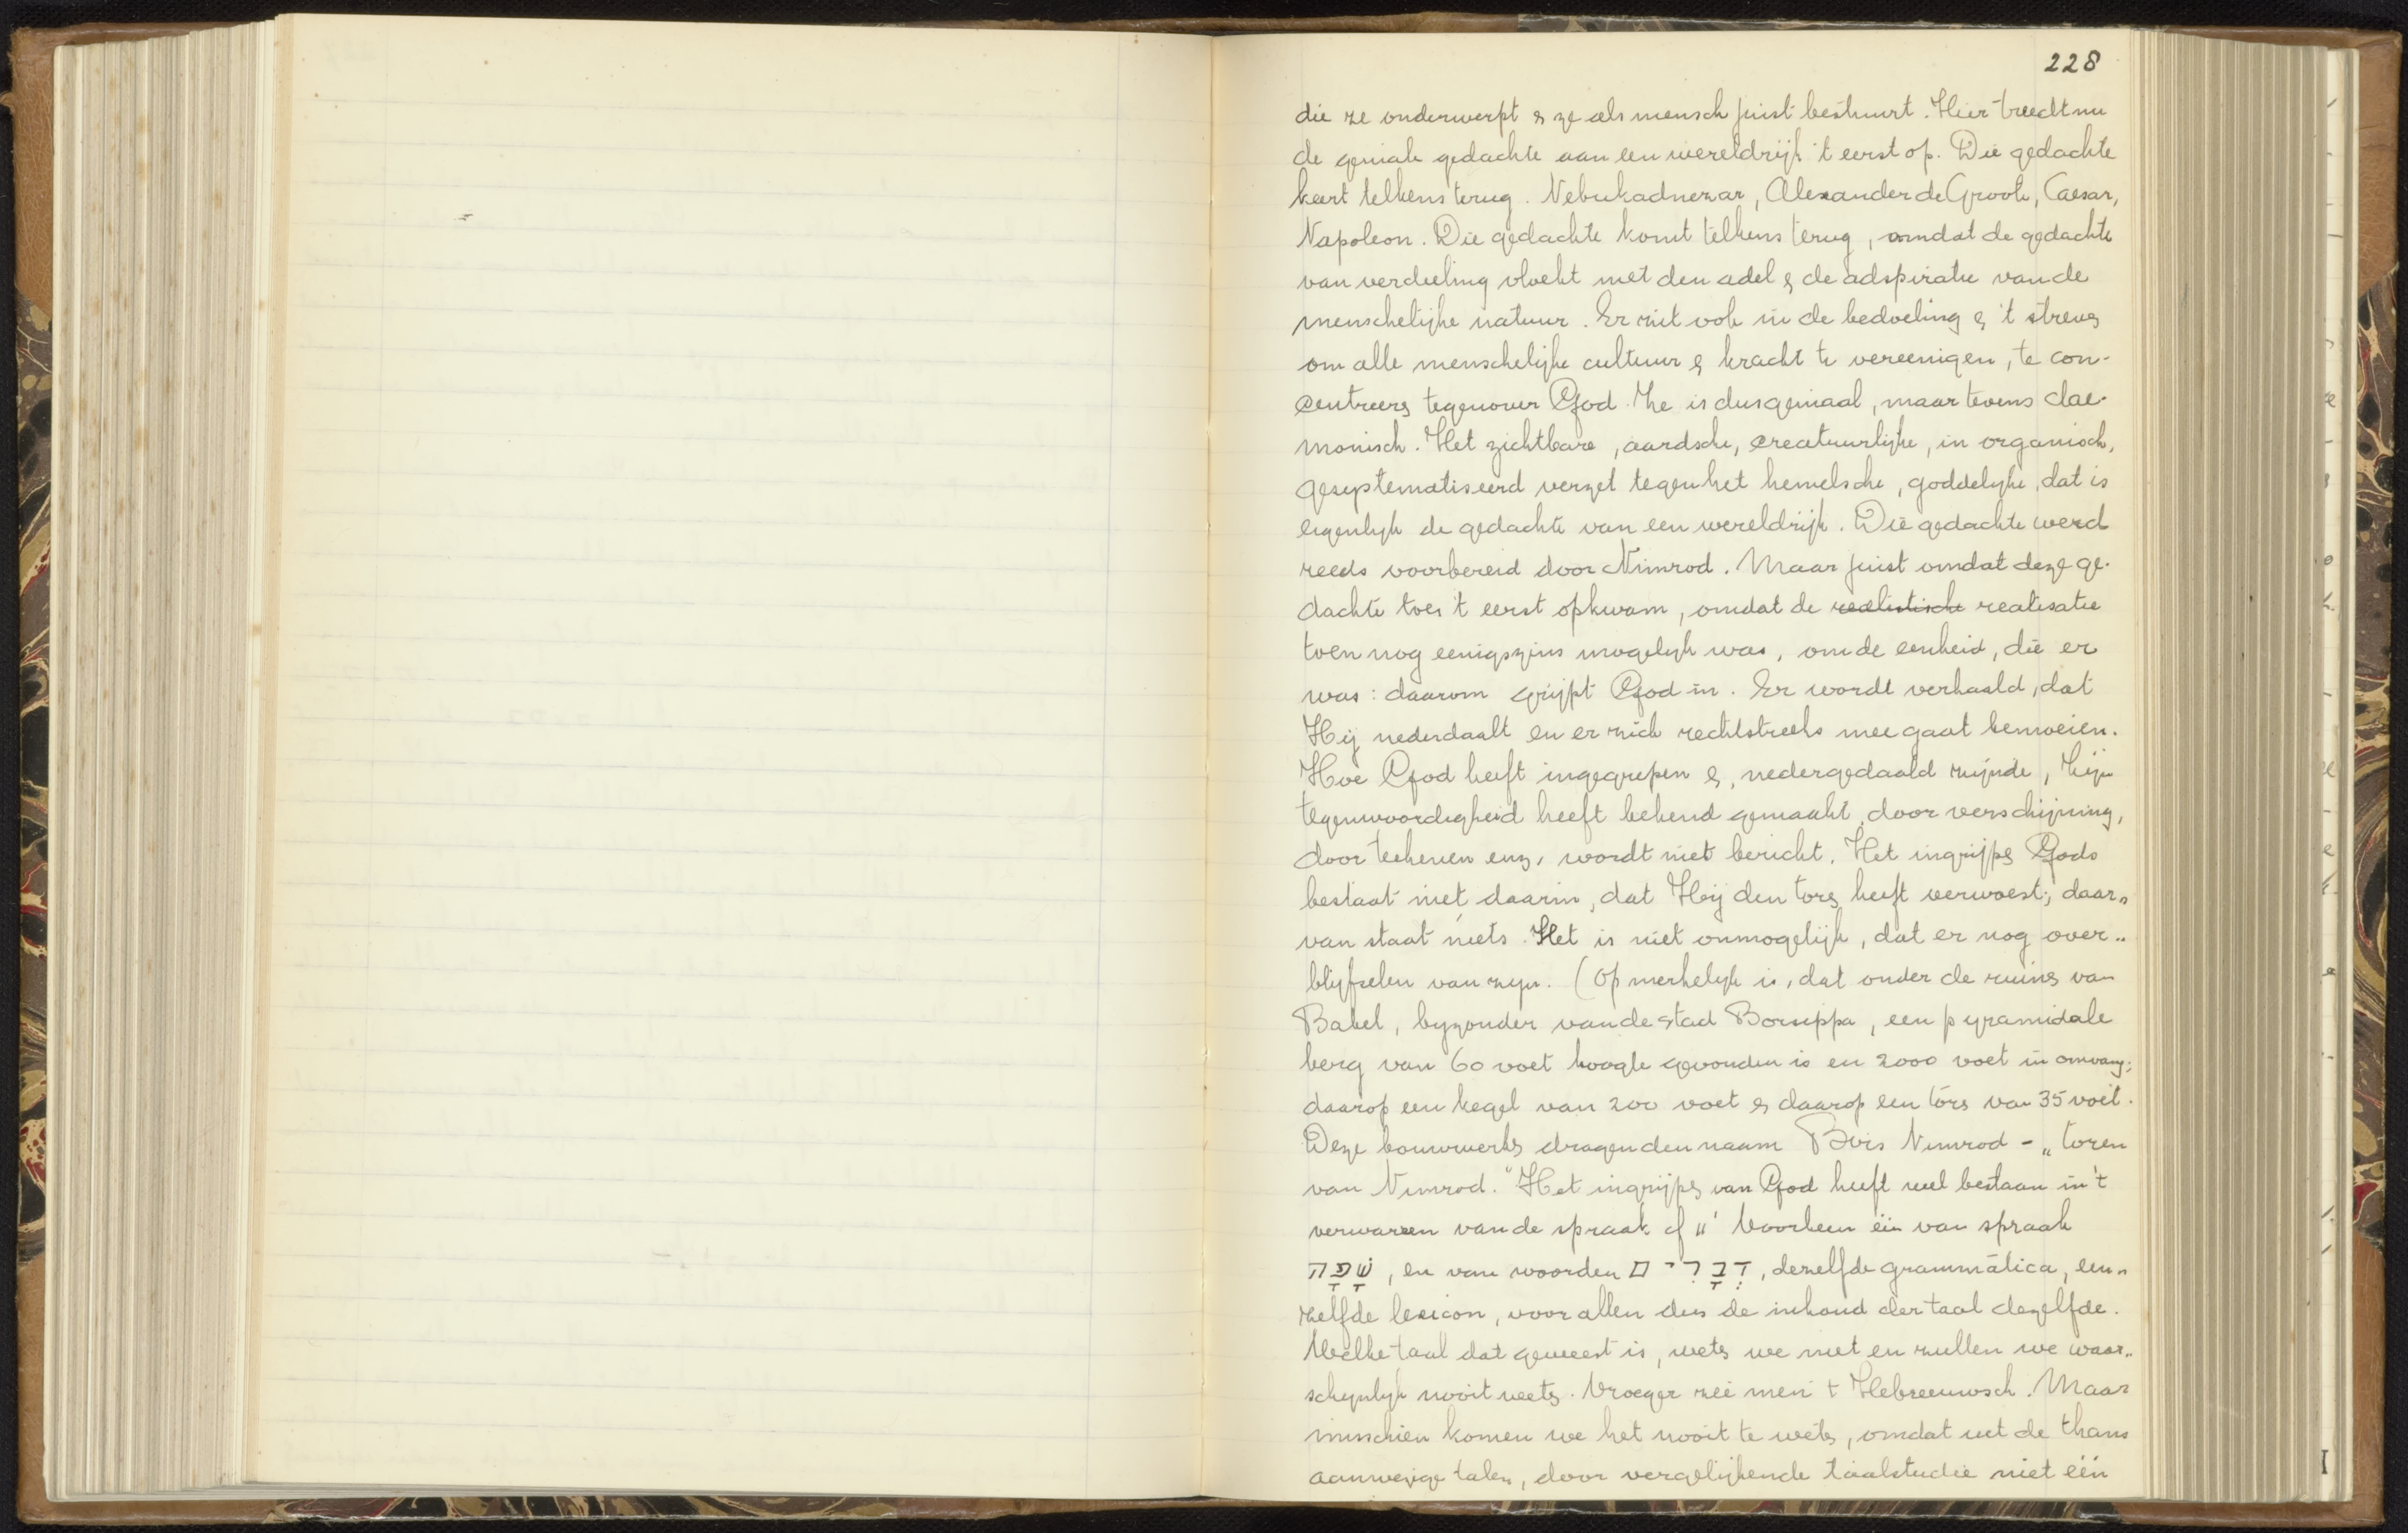 228
die ze onderwerpt & ze als mensch juist bestuurt. Hier treedt nu
de geniale gedachte aan een wereldrijk 't eerst op. Die gedachte
keert telkens terug. Nebukadnezar, Alexander de Groote, Caesar,
Napoleon. Die gedachte komt telkens terug, omdat de gedachte
van verdeeling vloekt met den adel & de adspiratie van de
menschelijke natuur. Er zit ook in de bedoeling & 't streven
om alle menschelijke cultuur & kracht te vereenigen, te con-
centreeren tegenover God. Ze is dus geniaal, maar tevens dae-
monisch. Het zichtbare, aardsche, creatuurlijke, in organisch,
gesystematiseerd verzet tegen het hemelsche, goddelijke, dat is
eigenlijk de gedachte van een wereldrijk. Die gedachte werd
reeds voorbereid door Nimrod. Maar juist omdat deze ge-
dachte toen 't eerst opkwam, omdat de realistische realisatie
toen nog eenigszins mogelijk was, om de eenheid, die er
was: daarom grijpt God in. Er wordt verhaald, dat
Hij nederdaalt en er zich rechtstreeks mee gaat bemoeien.
Hoe God heeft ingegrepen &, nedergedaald zijnde, Zijn
tegenwoordigheid heeft bekend gemaakt, door verschijning,
door teekenen enz, wordt niet bericht. Het ingrijpen Gods
bestaat niet daarin, dat Hij den toren heeft verwoest; daar-
van staat niets. Het is niet onmogelijk, dat er nog over-
blijfselen van zijn. (Opmerkelijk is, dat onder de ruïns van
Babel, byzonder van de stad Borsippa, een pyramidale
berg van 60 voet hoogte gevonden is en 2000 voet in omvang;
daarop een kegel van 200 voet & daarop een toren van 35 voet.
Deze bouwwerken dragen den naam Birs Nimrod - „toren
van Nimrod." Het ingrijpen van God heeft wel bestaan in 't
verwarren van de spraak cf 11¹ Voorheen één van spraak
שָׂפָה, en van woorden דְּבָרִים, dezelfde grammatica, een-
zelfde lexicon, voor allen dus de inhoud der taal dezelfde.
Welke taal dat geweest is, weten we niet en zullen we waar-
schynlijk nooit weten. Vroeger zei men 't Hebreeuwsch. Maar
misschien komen we het nooit te weten, omdat uit de thans
aanwezige talen, door vergelijkende taalstudie niet één